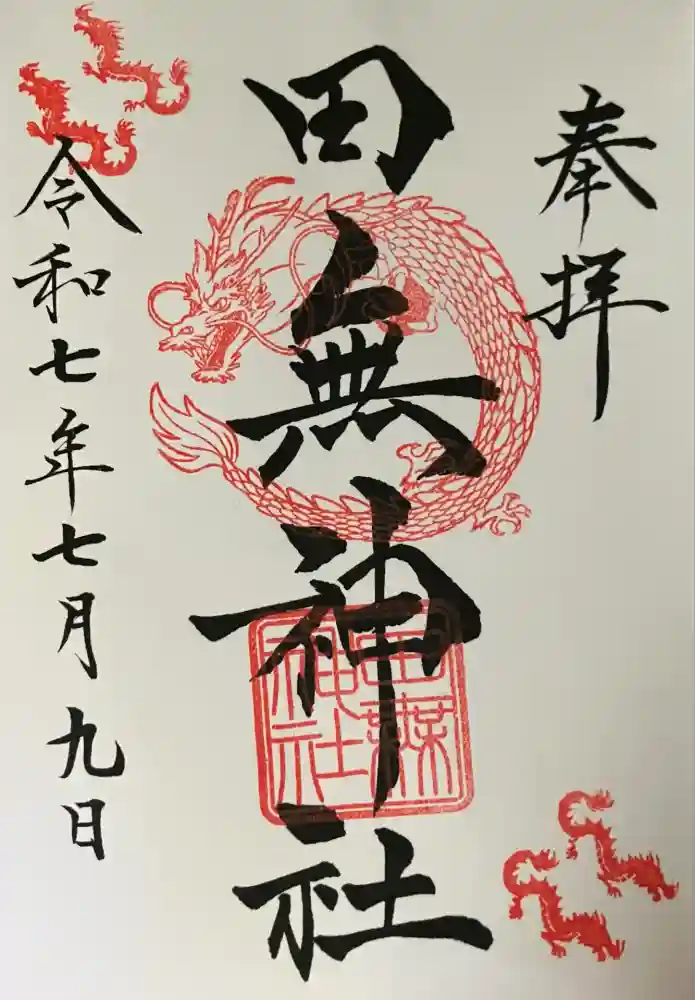 奉拝
田無神社
田無神社
令和七年七月九日